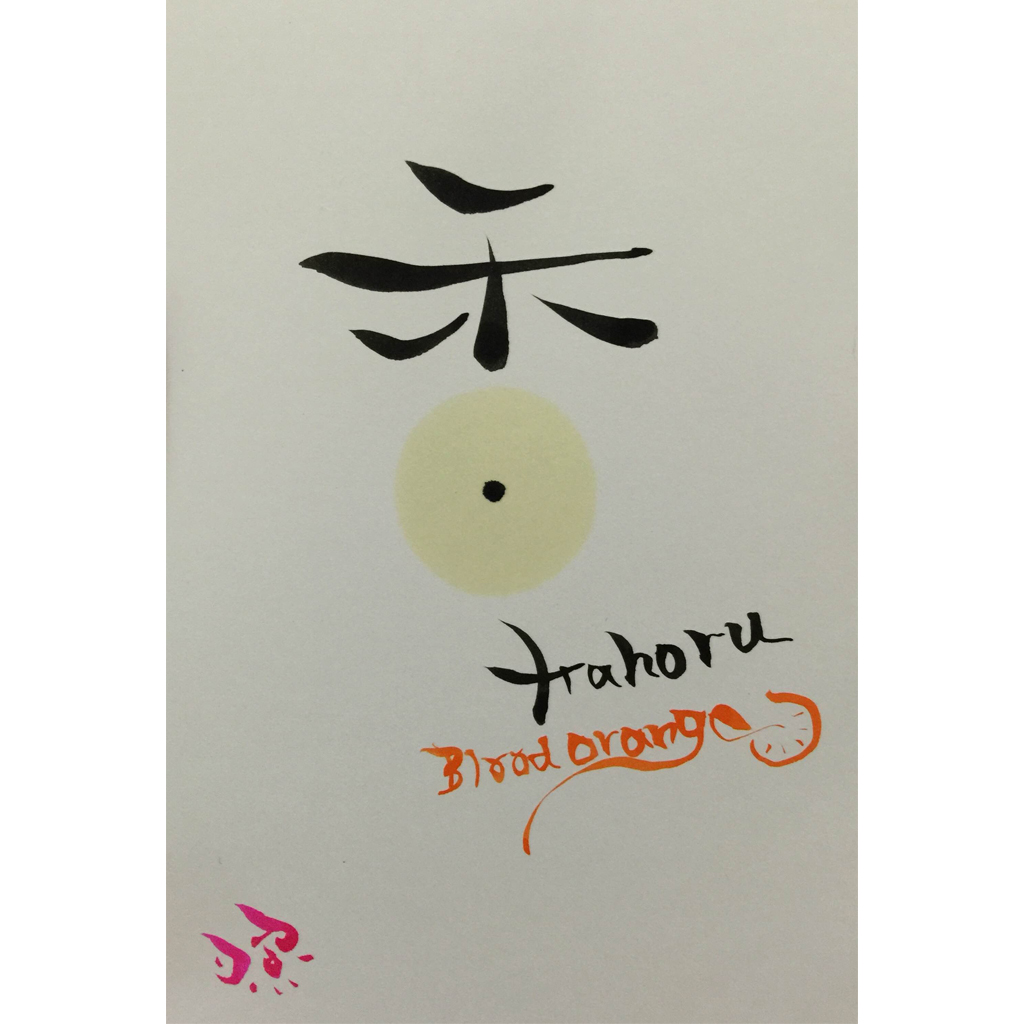 香
Kahoru
Blood orange
照